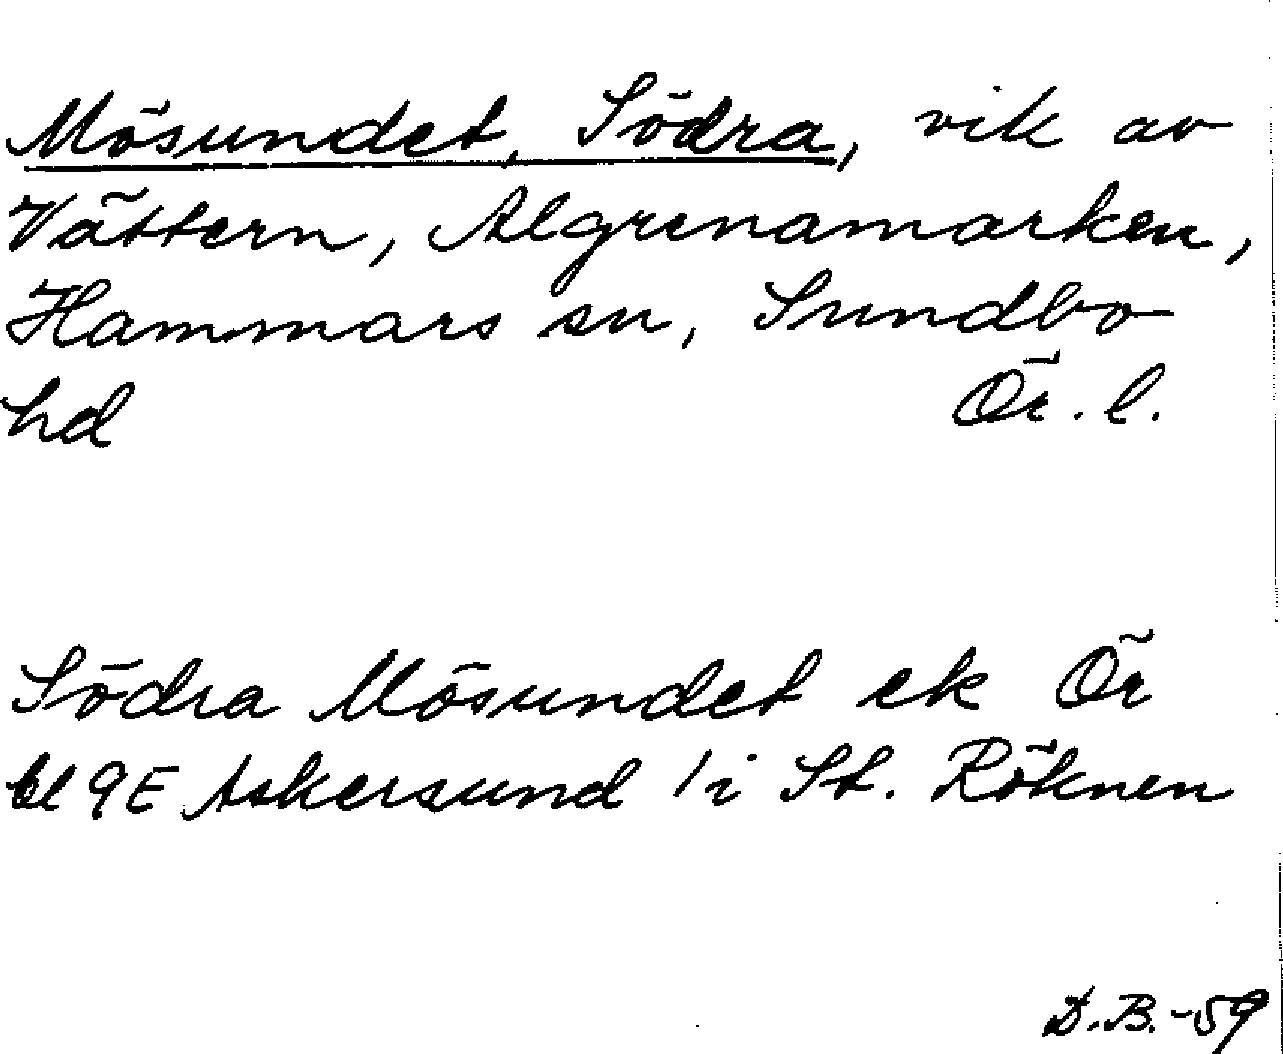 Mösundet, Södra, vik av
Vättern, Algrenamarken,
Hammars sn, Sundbo
hd Ör. l.
Södra Mösundet ek Ör
bl 9E Askersund /i St. Röknen
D.B.-59